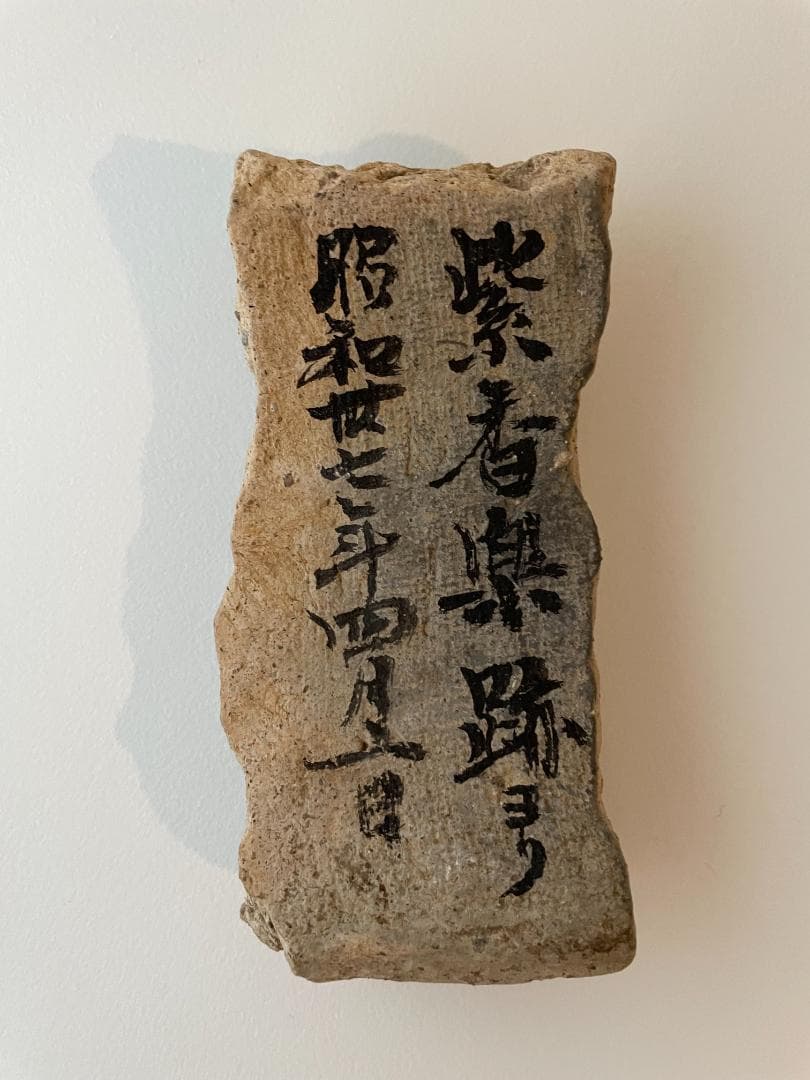 紫香楽跡ヨリ
昭和丗七年四月五日